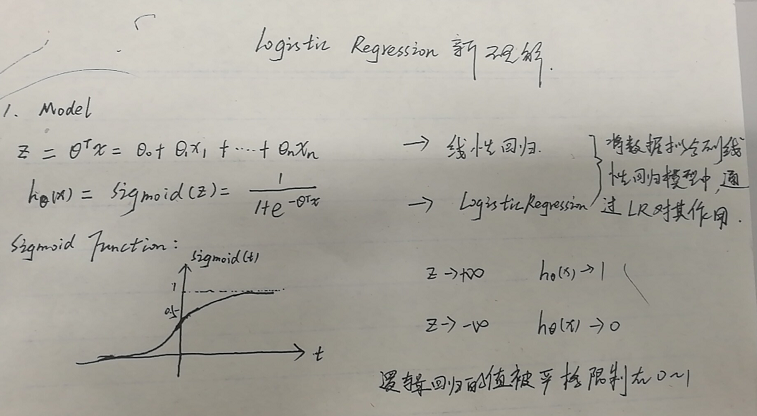 Logistic Regression 新理解.
1. Model
z = θᵀx = θ₀ + θ₁x₁ + ···· + θₙxₙ → 线性回归.
hθ(x) = sigmoid(z) = 1 / (1+e^(-θᵀx)) → Logistic Regression
将数据拟合到线
性回归模型中,通
过LR对其作用.
Sigmoid Function:
sigmoid(t)
1
0.5
t
z→+∞ hθ(x)→1
z→-∞ hθ(x)→0
逻辑回归的值被严格限制在0~1